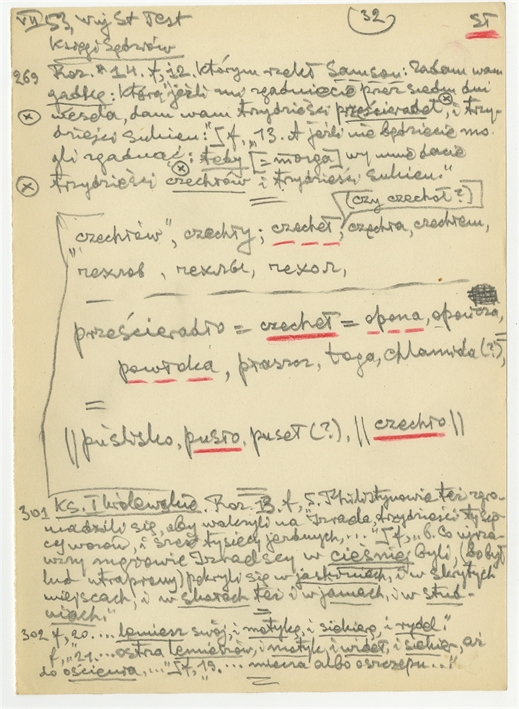 VII 53, Wuj St Test (32) ST
Księgi Sędziów
269 Roz. 14. f, 12. Którym rzekł Samson: Zadam wam
gadkę: którą jeśli mi zgadniecie przez siedm dni
wesela, dam wam trzydzieści prześcieradeł, i trzy-
dzieści sukien:" [f, 13. A jeśli nie będziecie mo-
gli zgadnąć: tedy [= mogą] wy mnie dacie
trzydzieści czechłów i trzydzieści sukien."
(czy czechoł?)
"czechłów", czechły; czecheł, czechła, czechłem,
чехлов, чехлы, чехол,
prześcieradło = czecheł = opona, opończa,
powłoka, płaszcz, toga, chlamida (?),
=
|| puślisko, pusło, puseł (?), || czechło ||
301 Ks. I Królewskie. Roz. 13. f, 5. Philistynowie też zgro-
madzili się, aby walczyli na Izraela, trzydzieści tysię-
cy wozów, i sześć tysięcy jezdnych, ..." [f, "6. Co ujrza-
wszy mężowie Izraelscy w cieśni być, (bo był
lud utrapiony) pokryli się w jaskiniach, i w skrytych
miejscach, i w skałach też i w jamach, i w stud-
niach."
302 f, 20. ... lemiesz swój, i motykę, i siekierę, i rydel."
f, "21. ... ostrza lemieszów, i motyk, i wideł, i siekier, aż
do ościenia, ..." [f, 19. ... miecza albo oszczepu ..."